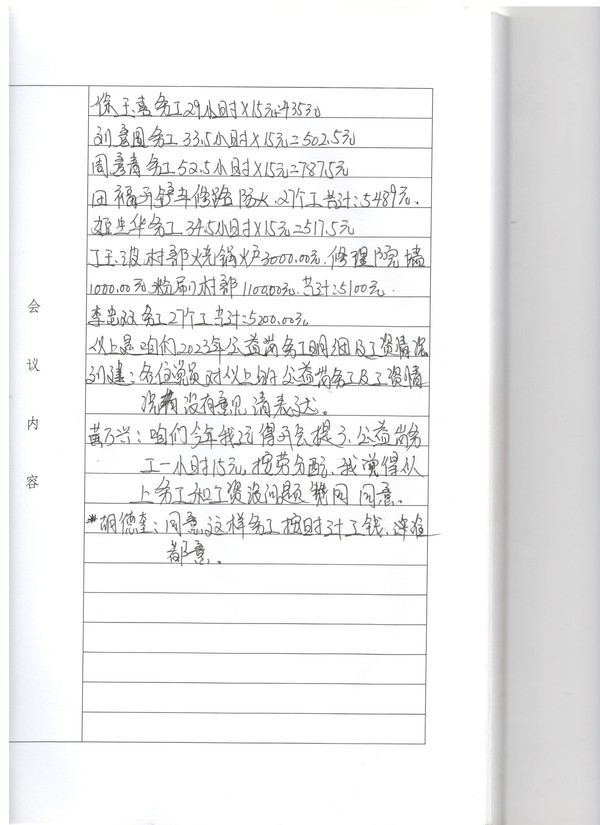 会议内容
徐玉喜务工29小时X15元=435元
刘彦国务工33.5小时X15元=502.5元
周彦青务工52.5小时X15元=787.5元
田福 铲车修路防火27个工共计:5489元.
华务工34.5小时X15元=517.5元
丁玉波村部烧锅炉3000.00元.修理院墙
1000.00元粉刷村部1100.00元.共计:5100元.
李忠双务工27个工共计:5200.00元
以上是咱们2023年公益岗务工明细及工资情况
刘建:各位党员对以上公益岗务工及工资情
况有没有意见请表决。
黄万兴:咱们今年我记得开会提了,公益岗务
工一小时15元,按劳分配,我觉得从
上务工和工资没问题 赞同 同意.
胡德奎:同意这样务工按时计工钱,连
都意。